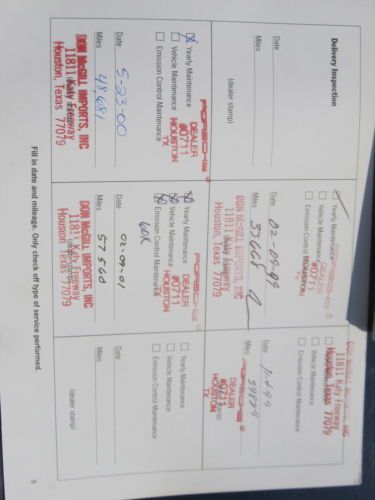 Delivery Inspection
Date
Miles
(dealer stamp)
Yearly Maintenance
Vehicle Maintenance
Emission Control Maintenance
PORSCHE
DEALER
#0711
HOUSTON
TX
Date 02-09-99
Miles 33668
DON McGILL IMPORTS, INC
11811 Katy Freeway
Houston, Texas 77079
DON McGILL IMPORTS, INC
11811 Katy Freeway
Houston, Texas 77079
Vehicle Maintenance
Emission Control Maintenance
Date
Miles
PORSCHE
DEALER
#0711
HOUSTON
TX
Yearly Maintenance
Vehicle Maintenance
Emission Control Maintenance
PORSCHE
DEALER
#0711
HOUSTON
TX
Date 5-23-00
Miles 48,681
DON McGILL IMPORTS, INC
11811 Katy Freeway
Houston, Texas 77079
Yearly Maintenance
Vehicle Maintenance
Emission Control Maintenance
60K
PORSCHE
DEALER
#0711
HOUSTON
TX
Date 02-09-01
Miles 57560
DON McGILL IMPORTS, INC
11811 Katy Freeway
Houston, Texas 77079
Yearly Maintenance
Vehicle Maintenance
Emission Control Maintenance
Date
Miles
(dealer stamp)
Fill in date and mileage. Only check off type of service performed.
9